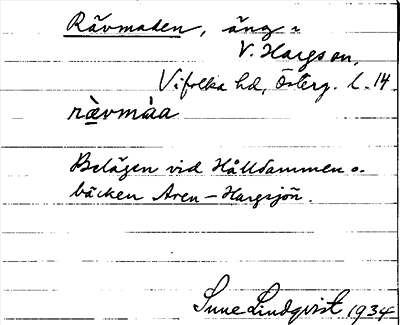 Rävmaden, äng i
V. Harg sn,
Vifolka hd, Österg. l. 14
rävmàa
Belägen vid Hålldammen o.
bäcken Aren – Hargsjön.
Sune Lindqvist 1934